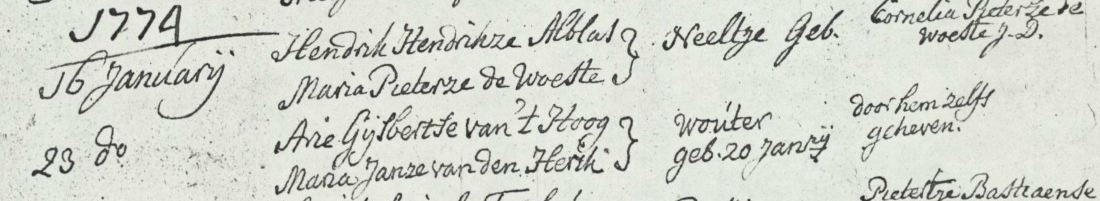 1774
16 Januarij
Hendrik Hendrikze Alblas
Maria Pieterze de Woeste
Neeltje Geb.
Cornelia Pieterze de
Woeste J. D.
23 do
Arie Gijsbertse van 't Hoog
Maria Janze van den Herik
Wouter
geb. 20 Janrij
door hem zelfs
geheven.
Pietertje Bastiaense